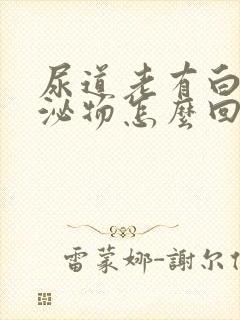 尿道老有白
泌物怎麼回
雷蒙娜-謝尔